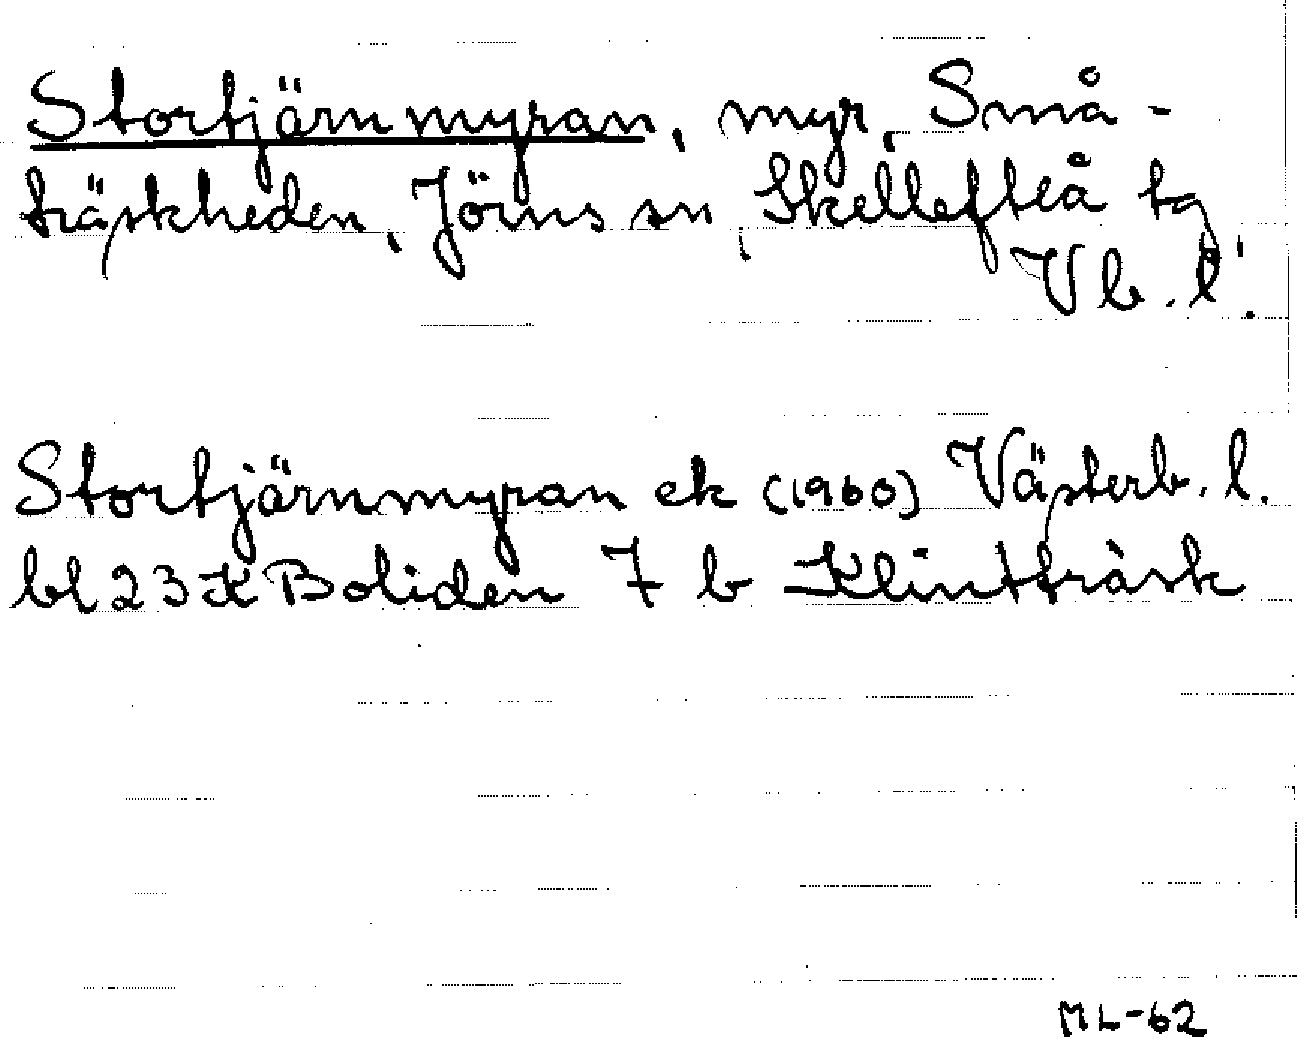 Stortjärnmyran, myr, Små-
träskheden, Jörns sn, Skellefteå tg,
Vb. l.
Stortjärnmyran ek (1960) Västerb. l.
bl 23 K Boliden 7 b Klintträsk
ML-62